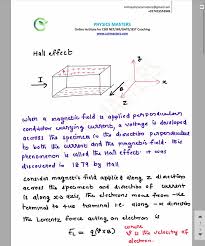 PHYSICS MASTERS
Online Institute for CSIR NET/JRF/GATE/JEST Coaching
Hall effect
I
B
x
y
z
when a magnetic field is applied perpendicular
conductor carrying current, a voltage is developed
across the specimen in the direction perpendicular
to both the current and the magnetic field. This
phenomenon is called the Hall effect. It was
discovered in 1879 by Hall
Consider magnetic field applied along z direction
across the specimen and direction of current
is along x axis, the electrons move from -ve
terminal to +ve terminal i.e. along -x direction
the Lorentz force acting on electron is
FL = q(v×B)
where
v is the velocity of
electron.